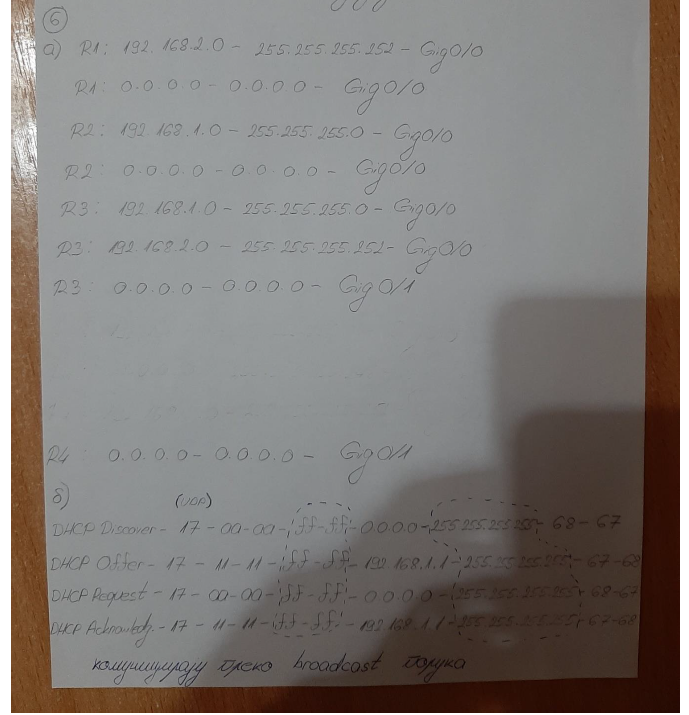 6
a) R1: 192.168.2.0 - 255.255.255.252 - Gig0/0
R1: 0.0.0.0 - 0.0.0.0 - Gig0/0
R2: 192.168.1.0 - 255.255.255.0 - Gig0/0
R2: 0.0.0.0 - 0.0.0.0 - Gig0/0
R3: 192.168.1.0 - 255.255.255.0 - Gig0/0
R3: 192.168.2.0 - 255.255.255.252 - Gig0/0
R3: 0.0.0.0 - 0.0.0.0 - Gig0/1
R4: 0.0.0.0 - 0.0.0.0 - Gig0/1
б) (UDP)
DHCP Discover - 17 - aa-aa - ff-ff - 0.0.0.0 - 255.255.255.255 - 68 - 67
DHCP Offer - 17 - 11 - 11 - ff-ff - 192.168.1.1 - 255.255.255.255 - 67-68
DHCP Request - 17 - aa-aa - ff-ff - 0.0.0.0 - 255.255.255.255 - 68-67
DHCP Acknowledg. - 17 - 11 - 11 - ff-ff - 192.168.1.1 - 255.255.255.255 - 67-68
комуницирају преко broadcast порука